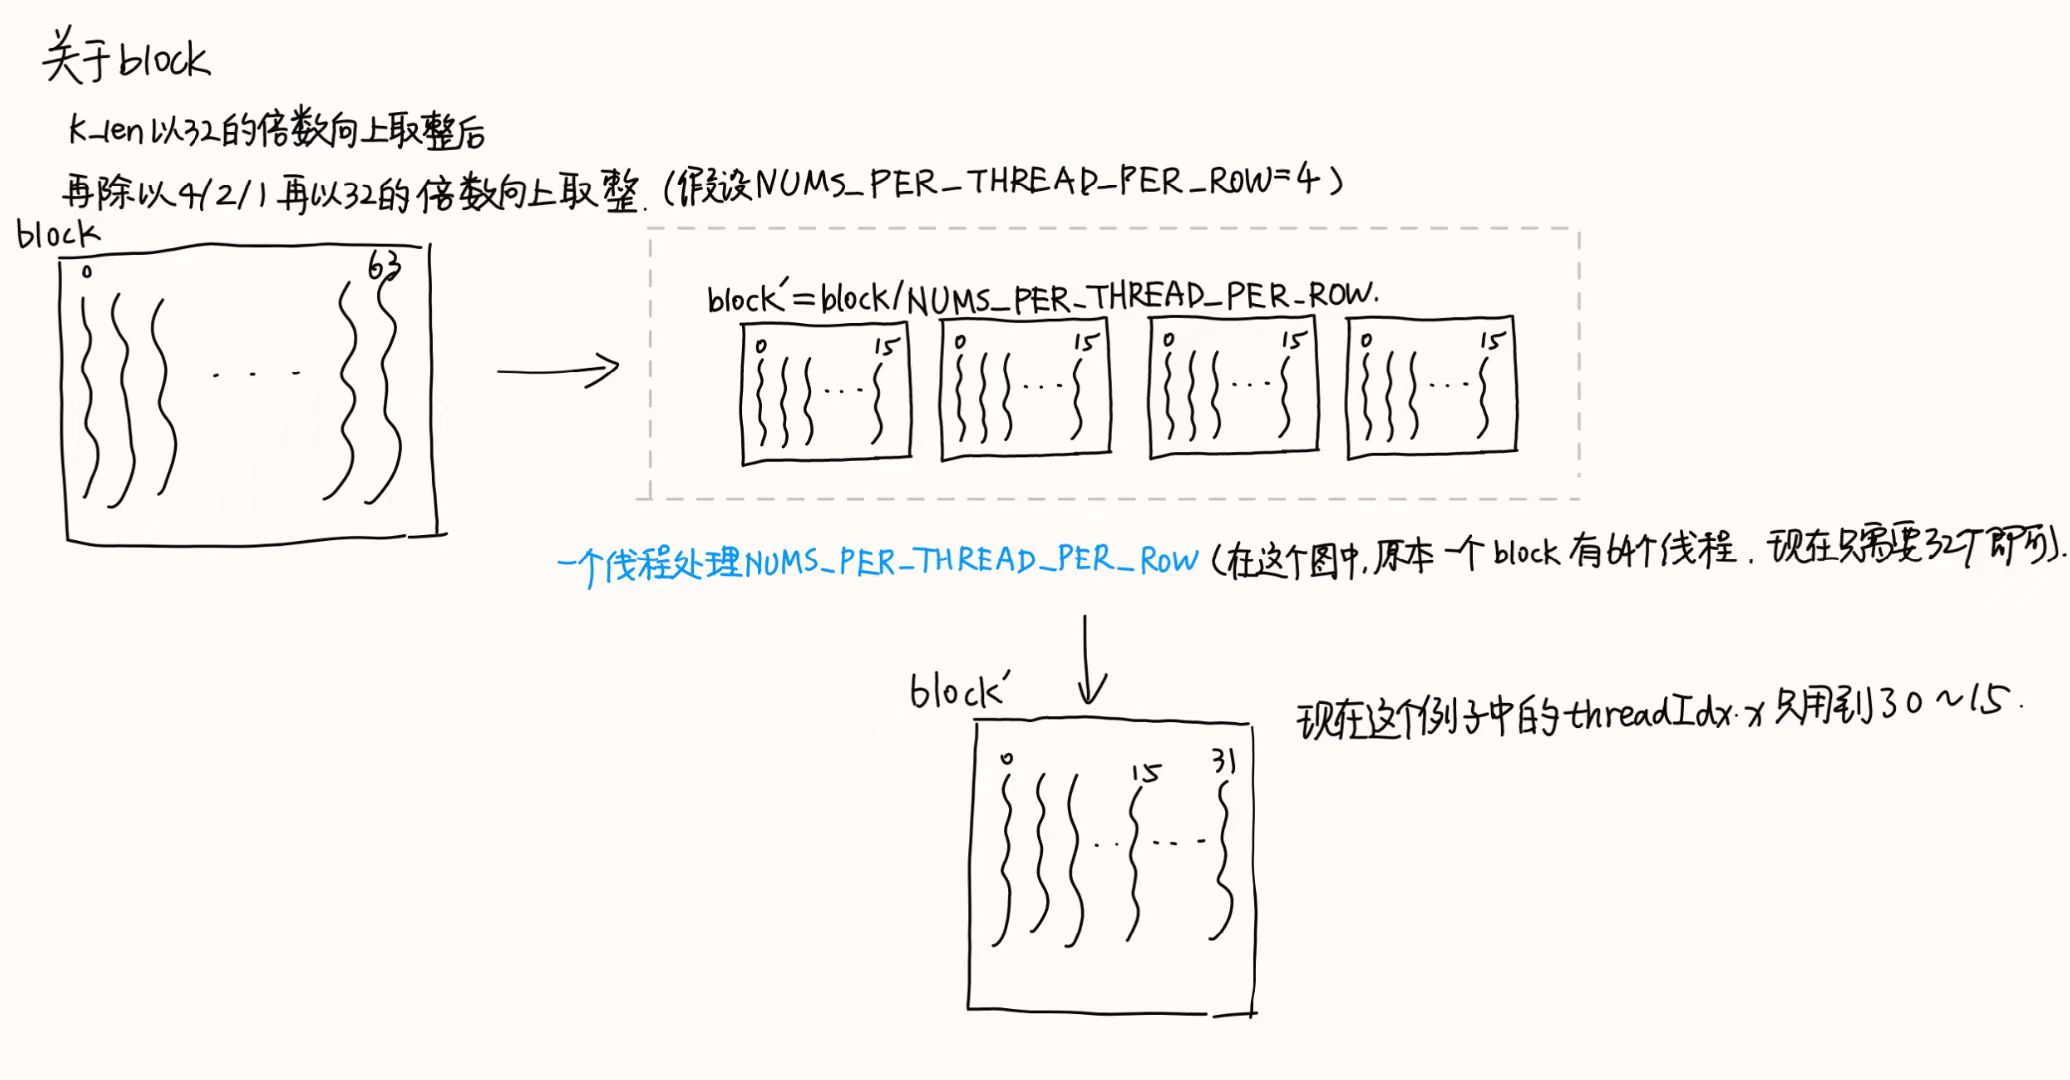 关于block
K_len以32的倍数向上取整后
再除以4/2/1再以32的倍数向上取整.(假设NUMS_PER_THREAD_PER_ROW=4)
block
0 63
block'=block/NUMS_PER_THREAD_PER_ROW.
0 15 0 15 0 15 0 15
一个线程处理NUMS_PER_THREAD_PER_ROW(在这个图中,原本一个block有64个线程.现在只需要32个即可).
block'
现在这个例子中的threadIdx.x只用到了0~15.
0 15 31